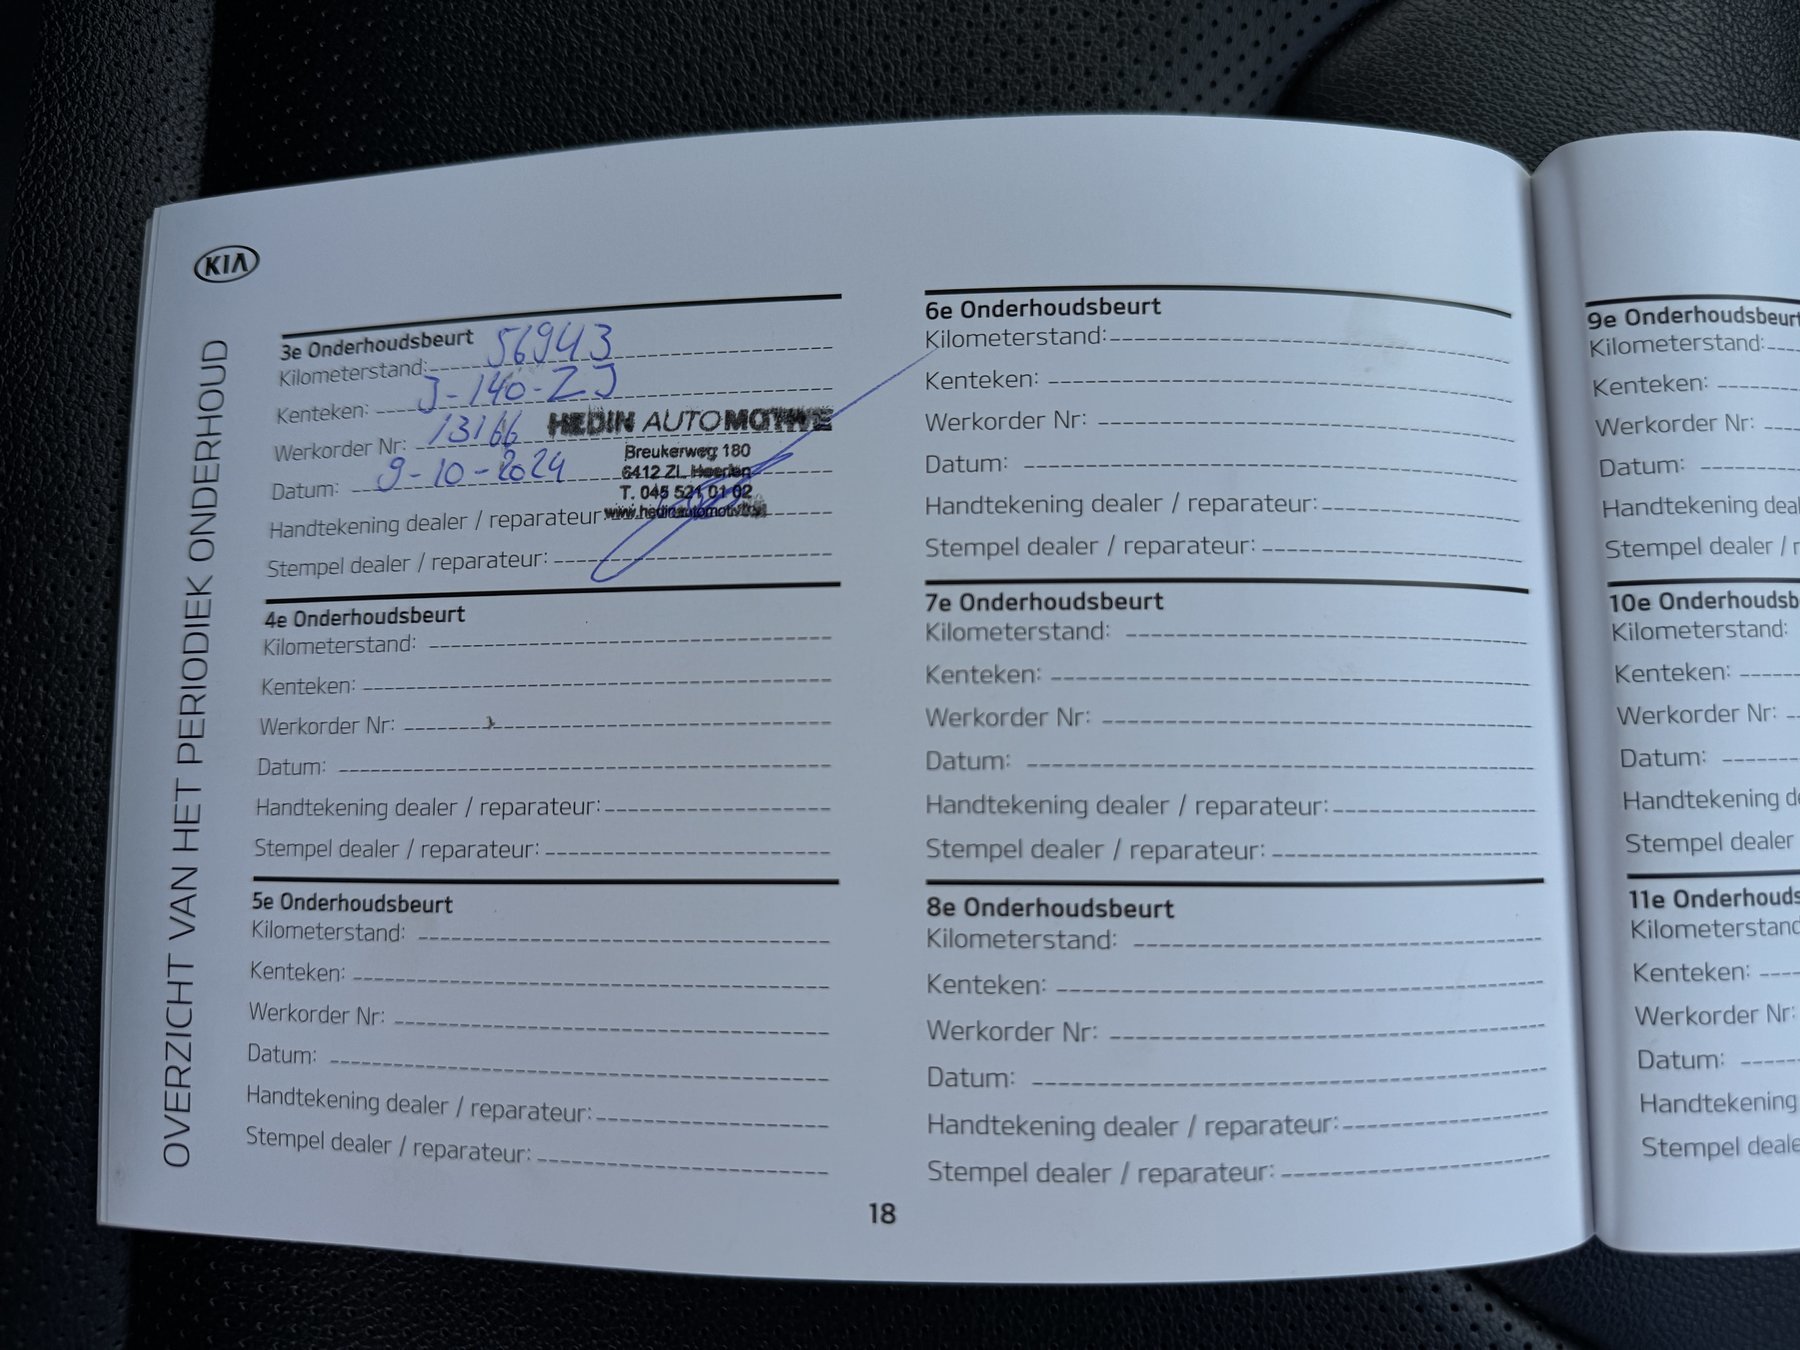 KIA
OVERZICHT VAN HET PERIODIEK ONDERHOUD
3e Onderhoudsbeurt
Kilometerstand: 56943
Kenteken: J-140-ZJ
Werkorder Nr: 13166
Datum: 9-10-2024
Handtekening dealer / reparateur:
Stempel dealer / reparateur:
HEDIN AUTOMOTIVE
Breukerweg 180
6412 ZL Heerlen
T. 045 521 01 02
www.hedinautomotive.nl
4e Onderhoudsbeurt
Kilometerstand:
Kenteken:
Werkorder Nr:
Datum:
Handtekening dealer / reparateur:
Stempel dealer / reparateur:
5e Onderhoudsbeurt
Kilometerstand:
Kenteken:
Werkorder Nr:
Datum:
Handtekening dealer / reparateur:
Stempel dealer / reparateur:
6e Onderhoudsbeurt
Kilometerstand:
Kenteken:
Werkorder Nr:
Datum:
Handtekening dealer / reparateur:
Stempel dealer / reparateur:
7e Onderhoudsbeurt
Kilometerstand:
Kenteken:
Werkorder Nr:
Datum:
Handtekening dealer / reparateur:
Stempel dealer / reparateur:
8e Onderhoudsbeurt
Kilometerstand:
Kenteken:
Werkorder Nr:
Datum:
Handtekening dealer / reparateur:
Stempel dealer / reparateur:
18
9e Onderhoudsbeurt
Kilometerstand:
Kenteken:
Werkorder Nr:
Datum:
Handtekening deal
Stempel dealer / r
10e Onderhoudsb
Kilometerstand:
Kenteken:
Werkorder Nr:
Datum:
Handtekening de
Stempel dealer
11e Onderhouds
Kilometerstand
Kenteken:
Werkorder Nr:
Datum:
Handtekening
Stempel deale